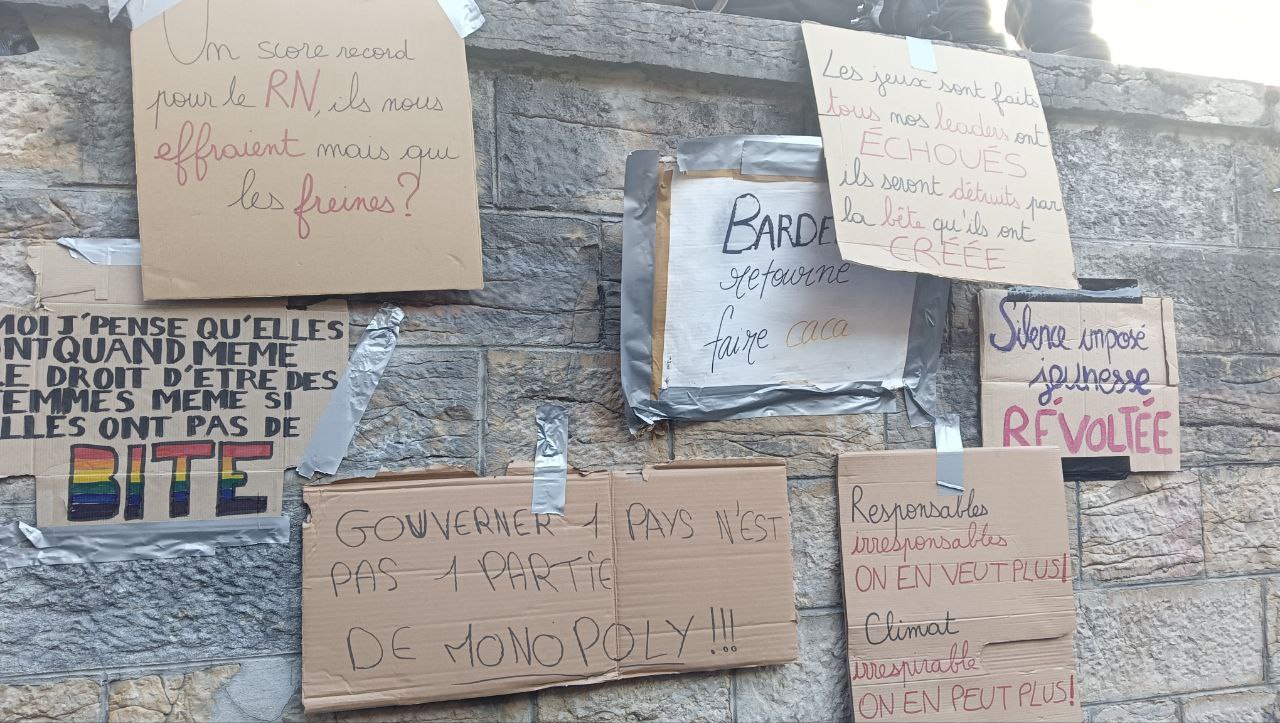 Un score record
pour le RN, ils nous
effraient mais qui
les freines?
Les jeux sont faits
tous nos leaders ont
ÉCHOUÉS
ils seront détruits par
la bête qu'ils ont
CRÉÉE
BARDE
retourne
faire caca
MOI J'PENSE QU'ELLES
ONT QUAND MEME
LE DROIT D'ETRE DES
FEMMES MEME SI
ELLES ONT PAS DE
BITE
Silence imposé
jeunesse
RÉVOLTÉE
GOUVERNER 1 PAYS N'EST
PAS 1 PARTIE
DE MONOPOLY !!!
Responsables
irresponsables
ON EN VEUT PLUS!
Climat
irrespirable
ON EN PEUT PLUS!